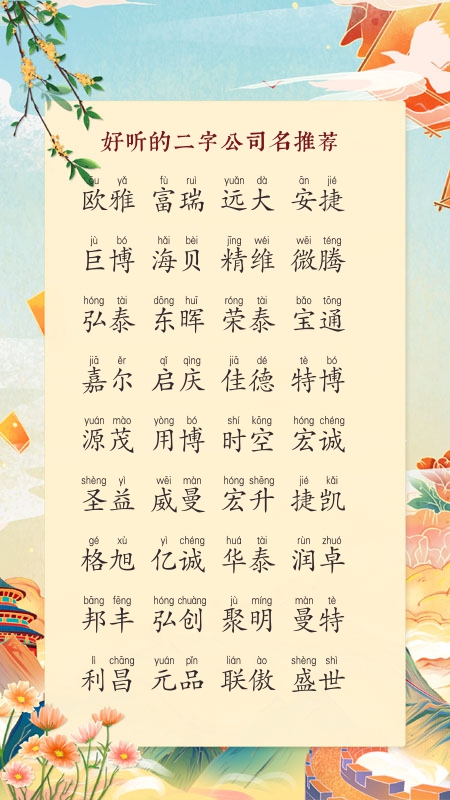 好听的二字公司名推荐
ōu yǎ fù ruì yuǎn dà ān jié
欧雅 富瑞 远大 安捷
jù bó hǎi bèi jīng wéi wēi téng
巨博 海贝 精维 微腾
hóng tài dōng huī róng tài bǎo tōng
弘泰 东晖 荣泰 宝通
jiā ěr qǐ qìng jiā dé tè bó
嘉尔 启庆 佳德 特博
yuán mào yòng bó shí kōng hóng chéng
源茂 用博 时空 宏诚
shèng yì wēi màn hóng shēng jié kǎi
圣益 威曼 宏升 捷凯
gé xù yì chéng huá tài rùn zhuó
格旭 亿诚 华泰 润卓
bāng fēng hóng chuàng jù míng màn tè
邦丰 弘创 聚明 曼特
lì chāng yuán pǐn lián ào shèng shì
利昌 元品 联傲 盛世